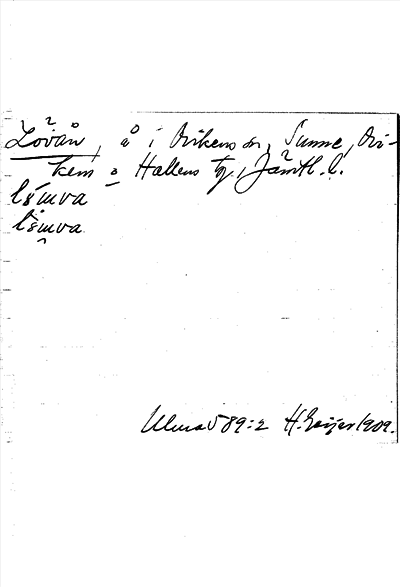 Lövån, å i Ovikens sn, Sunne, Ovi-
kens o Hallens tg, Jämtl. l.
Ulma 589:2 H. Geijer 1909.